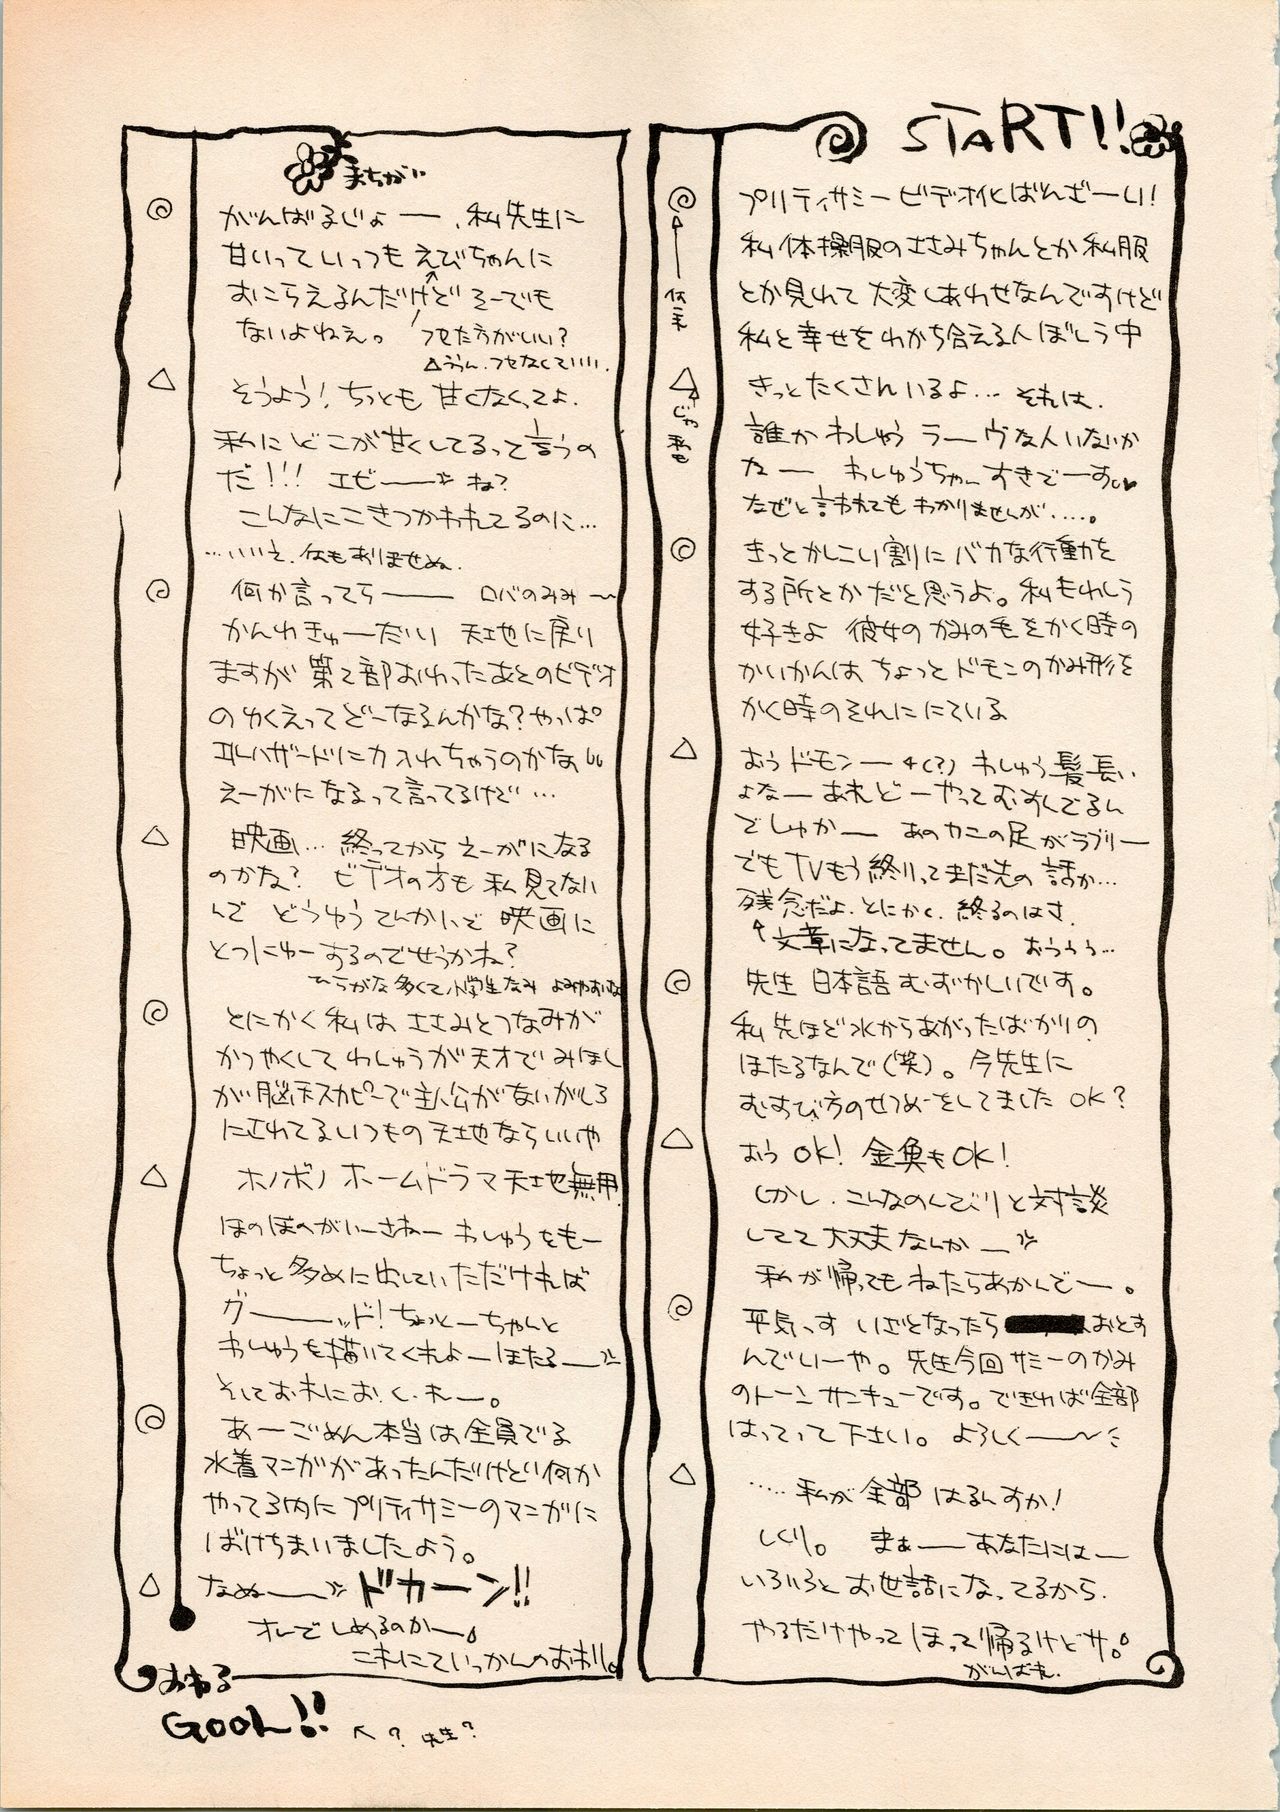 START!!
プリティサミービデオ化ばんざーい!
私体操服のささみちゃんとか私服
とか見れて大変しあわせなんですけど
私と幸せをわかち合える人ぼしう中
◎←住東
きっとたくさんいるよ… それは.
誰かわしゅうラーヴな人いないか
なー わしゅうちゃーんすきでーす♥
なぜと言われてもわかりませんが…‥。
△←じゃ私も
◎
きっとかしこい割にバカな行動を
する所とかだと思うよ。私もわしう
好きよ 彼女のかみの毛をかく時の
かいかんは ちょっとドモンのかみ形を
かく時のそれににている
△
おうドモンー (?) わしゅう髪長い
よなー あれどーやってむすんでるん
でしゅかー あのカニの足がラブリー
でもTVもう終りってまだ先の話か…
残念だよ.とにかく.終るのはさ.
↑文章になってません。おううぅ…
◎
先生 日本語むずかしいです。
私先ほど水からあがったばかりの
ほたるなんで(笑)。今先生に
むすび方のせつめーをしてました OK?
△
おう OK! 金魚もOK!
しかし.こんなのんびりと対談
してて大丈夫なんかー
私が帰ってもねたらあかんでー。
◎
平気っす いざとなったら おとす
んでいーや。先生今回サミーのかみ
のトーンサンキューです。できれば全部
はってって下さい。よろしくー〜
△
…‥私が全部はるんすか!
しくり。 まぁーあなたにはー
いろいろとお世話になってるから.
やるだけやってほって帰るけどサ。
がんばれ.
まちがい
◎
がんばるじょー.私先生に
甘いっていっつもえびちゃんに
おこらえるんだけどそーでも
ないよねぇ。 フセた方がいい?
△うぅん.フセなくていいい.
△
そうよう!ちっとも甘くなくってよ.
私にどこが甘くしてるって言うの
だ!!! エビーー ね?
こんなにこきつかわれてるのに…
…いいえ.何もありませぬ.
◎
何か言ってらーー ロバのみみ〜
かんわきゅーだい 天地に戻り
ますが 第2部おわったあとのビデオ
のゆくえってどーなるんかな?やっぱ
エルハザードに力入れちゃうのかなぁ
えーがになるって言ってるけど…
△
映画… 終ってからえーがになる
のかな? ビデオの方も私見てない
んで どうゆうてんかいで映画に
とつにゅーするのでせうかね?
ひらがな多くて小学生なみ よみやすいな
◎
とにかく私は ささみとつなみが
かつやくして わしゅうが天才でみほし
が脳天スカピーで主人公がないがしろ
にされてるいつもの天地ならいいや
△
ホノボノ ホームドラマ天地無用
ほのぼのがいーさねー わしゅうをもー
ちょっと多めに出していただければ
グーーッド!ちょっとーちゃんと
わしゅうを描いてくれよーほたるー
そしておれにおくれー。
◎
あーごめん本当は全員でる
水着マンガがあったんだけどい何か
やってる内にプリティサミーのマンガに
ばけちまいましたよう。
△
なぬーー ドカーン!!
オレでしめるのかー。
これにていっかんのおわり。
おわる
GOOL!! ←? 先生?